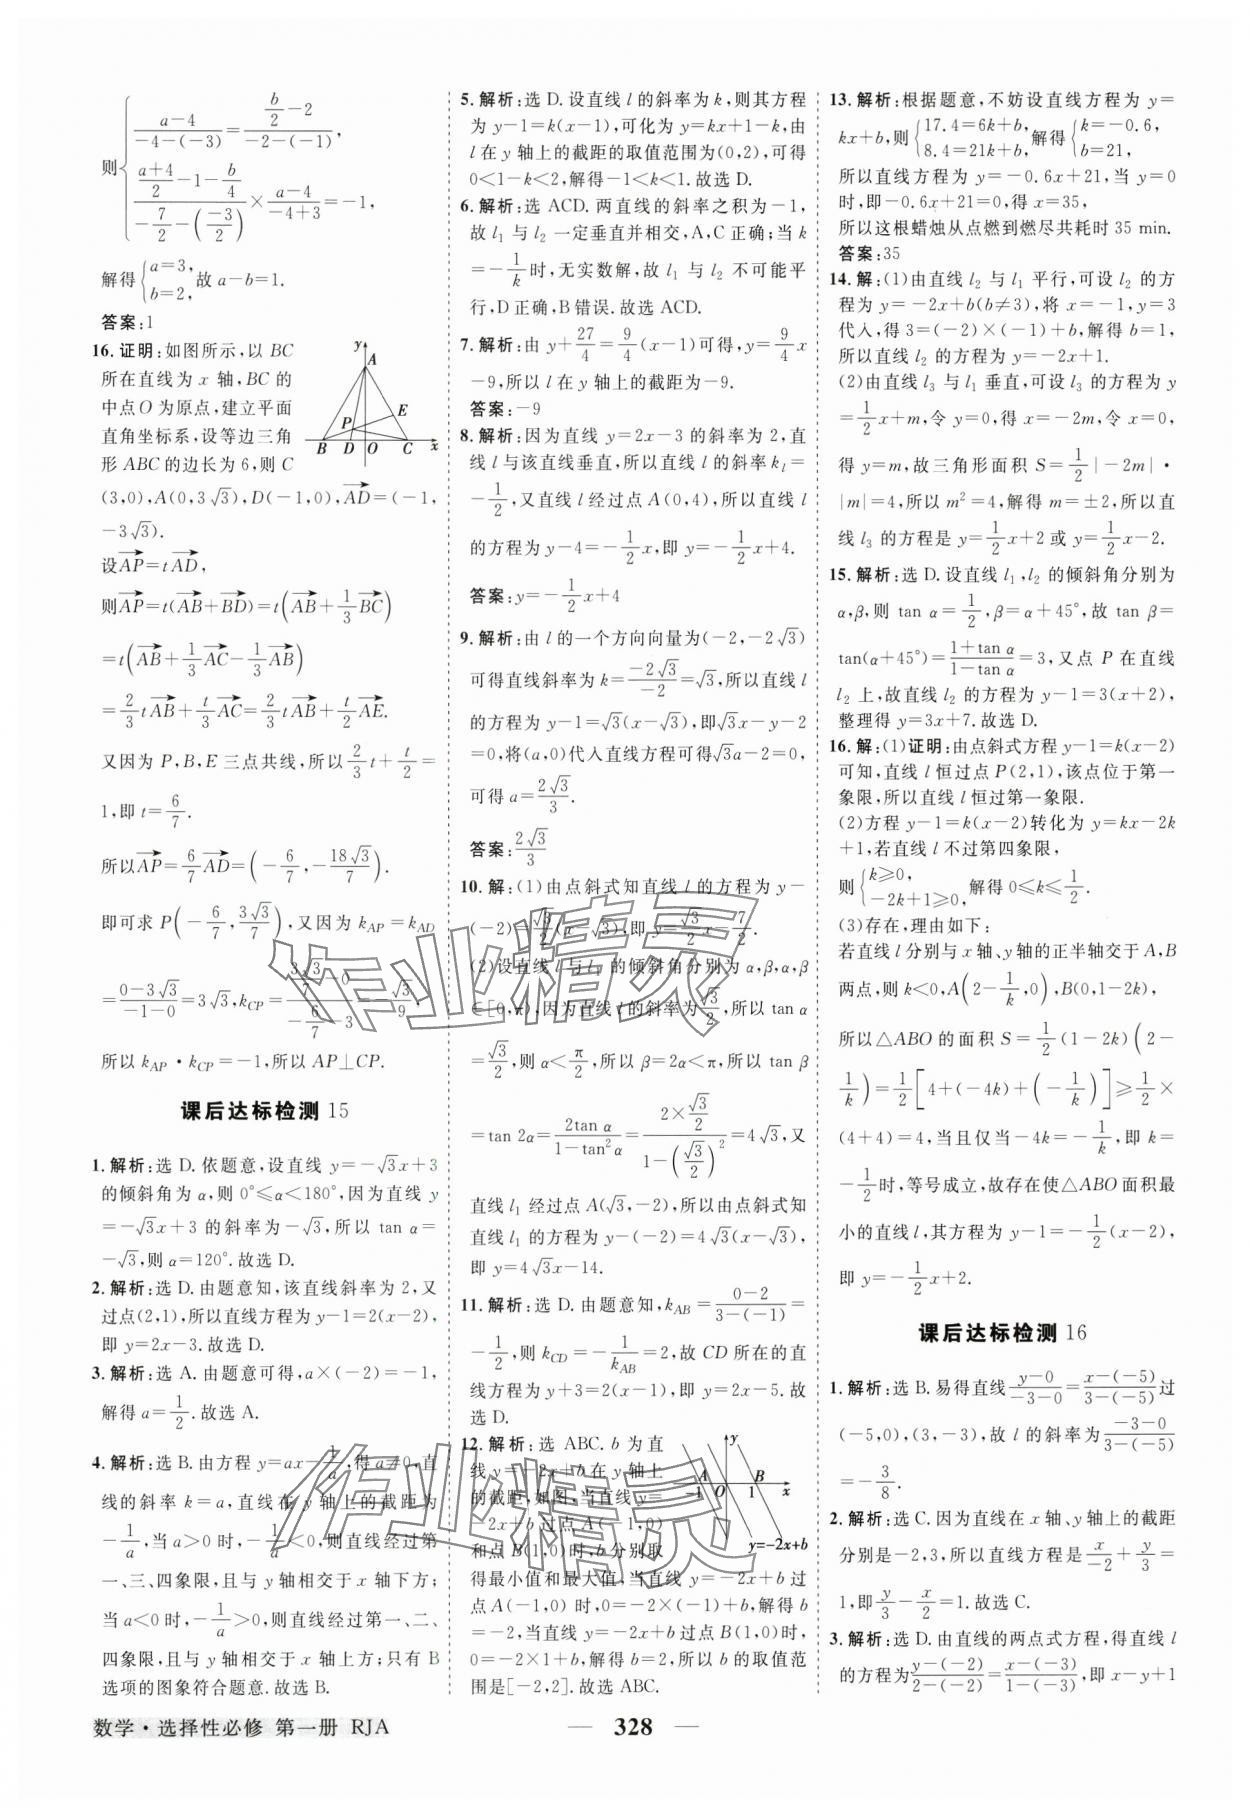 则{(a-4)/(-4-(-3))=(b/2-2)/(-2-(-1)),
((a+4)/2-1-b/4)/(-7/2-(-3/2))×(a-4)/(-4+3)=-1,
解得{a=3, b=2,故 a-b=1.
答案:1
16.证明:如图所示,以 BC
所在直线为 x 轴,BC 的
中点O 为原点,建立平面
直角坐标系,设等边三角
形 ABC 的边长为 6,则 C
y A E P B D O C x
(3,0),A(0,3√3),D(-1,0),AD→=(-1,
-3√3).
设AP→=tAD→,
则AP→=t(AB→+BD→)=t(AB→+1/3 BC→)
=t(AB→+1/3 AC→-1/3 AB→)
=2/3 tAB→+t/3 AC→=2/3 tAB→+t/2 AE→.
又因为 P,B,E 三点共线,所以 2/3 t+t/2=
1,即 t=6/7.
所以AP→=6/7 AD→=(-6/7,-18√3/7).
即可求 P(-6/7,3√3/7),又因为 kAP=kAD
=(0-3√3)/(-1-0)=3√3,kCP=(3√3/7-0)/(-6/7-3)=-√3/9,
所以 kAP·kCP=-1,所以 AP⊥CP.
课后达标检测 15
1.解析:选 D.依题意,设直线 y=-√3x+3
的倾斜角为 α,则 0°≤α<180°,因为直线 y
=-√3x+3 的斜率为-√3,所以 tan α=
-√3,则 α=120°.故选 D.
2.解析:选 D.由题意知,该直线斜率为 2,又
过点(2,1),所以直线方程为 y-1=2(x-2),
即 y=2x-3.故选 D.
3.解析:选 A.由题意可得,a×(-2)=-1,
解得 a=1/2.故选 A.
4.解析:选 B.由方程 y=ax-1/a,得 a≠0,直
线的斜率 k=a,直线在 y 轴上的截距为
-1/a,当 a>0 时,-1/a<0,则直线经过第
一、三、四象限,且与 y 轴相交于 x 轴下方;
当 a<0 时,-1/a>0,则直线经过第一、二、
四象限,且与 y 轴相交于 x 轴上方;只有 B
选项的图象符合题意.故选 B.
5.解析:选 D.设直线 l 的斜率为 k,则其方程
为 y-1=k(x-1),可化为 y=kx+1-k,由
l 在 y 轴上的截距的取值范围为(0,2),可得
0<1-k<2,解得-1<k<1.故选 D.
6.解析:选 ACD.两直线的斜率之积为-1,
故 l1 与 l2 一定垂直并相交,A,C 正确;当 k
=-1/k时,无实数解,故 l1 与 l2 不可能平
行,D 正确,B 错误.故选 ACD.
7.解析:由 y+27/4=9/4(x-1)可得,y=9/4 x
-9,所以 l 在 y 轴上的截距为-9.
答案:-9
8.解析:因为直线 y=2x-3 的斜率为 2,直
线 l 与该直线垂直,所以直线 l 的斜率 kl=
-1/2,又直线 l 经过点 A(0,4),所以直线 l
的方程为 y-4=-1/2 x,即 y=-1/2 x+4.
答案:y=-1/2 x+4
9.解析:由 l 的一个方向向量为(-2,-2√3)
可得直线斜率为 k=-2√3/-2=√3,所以直线 l
的方程为 y-1=√3(x-√3),即√3x-y-2
=0,将(a,0)代入直线方程可得√3a-2=0,
可得 a=2√3/3.
答案:2√3/3
10.解:(1)由点斜式知直线 l 的方程为 y-
(-2)=√3/2(x-√3),即 y=√3/2 x-7/2.
(2)设直线 l 与 l1 的倾斜角分别为 α,β,α,β
∈[0,π),因为直线 l 的斜率为√3/2,所以 tan α
=√3/2,则 α<π/2,所以 β=2α<π,所以 tan β
=tan 2α=2tan α/(1-tan²α)=(2×√3/2)/(1-(√3/2)²)=4√3,又
直线 l1 经过点 A(√3,-2),所以由点斜式知
直线 l1 的方程为 y-(-2)=4√3(x-√3),
即 y=4√3x-14.
11.解析:选 D.由题意知,kAB=(0-2)/(3-(-1))=
-1/2,则 kCD=-1/kAB=2,故 CD 所在的直
线方程为 y+3=2(x-1),即 y=2x-5.故
选 D.
12.解析:选 ABC.b 为直
线 y=-2x+b 在 y 轴上
的截距,如图,当直线 y=
-2x+b 过点 A(-1,0)
和点 B(1,0)时,b 分别取
y A B -1 O 1 x y=-2x+b
得最小值和最大值,当直线 y=-2x+b 过
点 A(-1,0)时,0=-2×(-1)+b,解得 b
=-2,当直线 y=-2x+b 过点 B(1,0)时,
0=-2×1+b,解得 b=2,所以 b 的取值范
围是[-2,2].故选 ABC.
13.解析:根据题意,不妨设直线方程为 y=
kx+b,则{17.4=6k+b, 8.4=21k+b,解得{k=-0.6, b=21,
所以直线方程为 y=-0.6x+21,当 y=0
时,即-0.6x+21=0,得 x=35,
所以这根蜡烛从点燃到燃尽共耗时 35 min.
答案:35
14.解:(1)由直线 l2 与 l1 平行,可设 l2 的方
程为 y=-2x+b(b≠3),将 x=-1,y=3
代入,得 3=(-2)×(-1)+b,解得 b=1,
所以直线 l2 的方程为 y=-2x+1.
(2)由直线 l3 与 l1 垂直,可设 l3 的方程为 y
=1/2 x+m,令 y=0,得 x=-2m,令 x=0,
得 y=m,故三角形面积 S=1/2|-2m|·
|m|=4,所以 m²=4,解得 m=±2,所以直
线 l3 的方程是 y=1/2 x+2 或 y=1/2 x-2.
15.解析:选 D.设直线 l1,l2 的倾斜角分别为
α,β,则 tan α=1/2,β=α+45°,故 tan β=
tan(α+45°)=(1+tan α)/(1-tan α)=3,又点 P 在直线
l2 上,故直线 l2 的方程为 y-1=3(x+2),
整理得 y=3x+7.故选 D.
16.解:(1)证明:由点斜式方程 y-1=k(x-2)
可知,直线 l 恒过点 P(2,1),该点位于第一
象限,所以直线 l 恒过第一象限.
(2)方程 y-1=k(x-2)转化为 y=kx-2k
+1,若直线 l 不过第四象限,
则{k≥0, -2k+1≥0,解得 0≤k≤1/2.
(3)存在,理由如下:
若直线 l 分别与 x 轴、y 轴的正半轴交于 A,B
两点,则 k<0,A(2-1/k,0),B(0,1-2k),
所以△ABO 的面积 S=1/2(1-2k)(2-
1/k)=1/2[4+(-4k)+(-1/k)]≥1/2×
(4+4)=4,当且仅当-4k=-1/k,即 k=
-1/2时,等号成立,故存在使△ABO 面积最
小的直线 l,其方程为 y-1=-1/2(x-2),
即 y=-1/2 x+2.
课后达标检测 16
1.解析:选 B.易得直线(y-0)/(-3-0)=(x-(-5))/(3-(-5))过
(-5,0),(3,-3),故 l 的斜率为(-3-0)/(3-(-5))
=-3/8.
2.解析:选 C.因为直线在 x 轴、y 轴上的截距
分别是-2,3,所以直线方程是x/-2+y/3=
1,即y/3-x/2=1.故选 C.
3.解析:选 D.由直线的两点式方程,得直线 l
的方程为(y-(-2))/(2-(-2))=(x-(-3))/(1-(-3)),即 x-y+1
数学·选择性必修 第一册 RJA
— 328 —
作业精灵
作业精灵